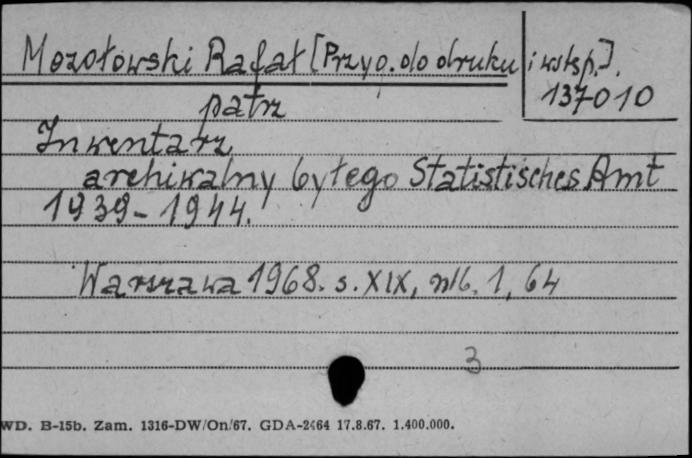 Mozołowski Rafał [Przyg. do druku i wstęp.].
137010
patrz
Inwentarz
archiwalny byłego Statistisches Amt
1939-1944.
Warszawa 1968. s. XIX, nlb. 1, 64
3
WD. B-15b. Zam. 1316-DW/On/67. GDA-2464 17.8.67. 1.400.000.